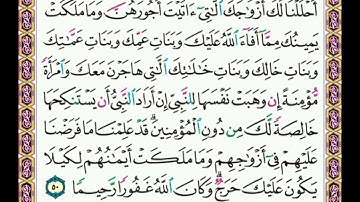 أَحْلَلْنَا لَكَ أَزْوَٰجَكَ ٱلَّٰتِىٓ ءَاتَيْتَ أُجُورَهُنَّ وَمَا مَلَكَتْ
يَمِينُكَ مِمَّآ أَفَآءَ ٱللَّهُ عَلَيْكَ وَبَنَاتِ عَمِّكَ وَبَنَاتِ عَمَّٰتِكَ
وَبَنَاتِ خَالِكَ وَبَنَاتِ خَٰلَٰتِكَ ٱلَّٰتِى هَاجَرْنَ مَعَكَ وَٱمْرَأَةً
مُّؤْمِنَةً إِن وَهَبَتْ نَفْسَهَا لِلنَّبِىِّ إِنْ أَرَادَ ٱلنَّبِىُّ أَن يَسْتَنكِحَهَا
خَالِصَةً لَّكَ مِن دُونِ ٱلْمُؤْمِنِينَ ۗ قَدْ عَلِمْنَا مَا فَرَضْنَا
عَلَيْهِمْ فِىٓ أَزْوَٰجِهِمْ وَمَا مَلَكَتْ أَيْمَٰنُهُمْ لِكَيْلَا
يَكُونَ عَلَيْكَ حَرَجٌ ۗ وَكَانَ ٱللَّهُ غَفُورًا رَّحِيمًا ٥٠